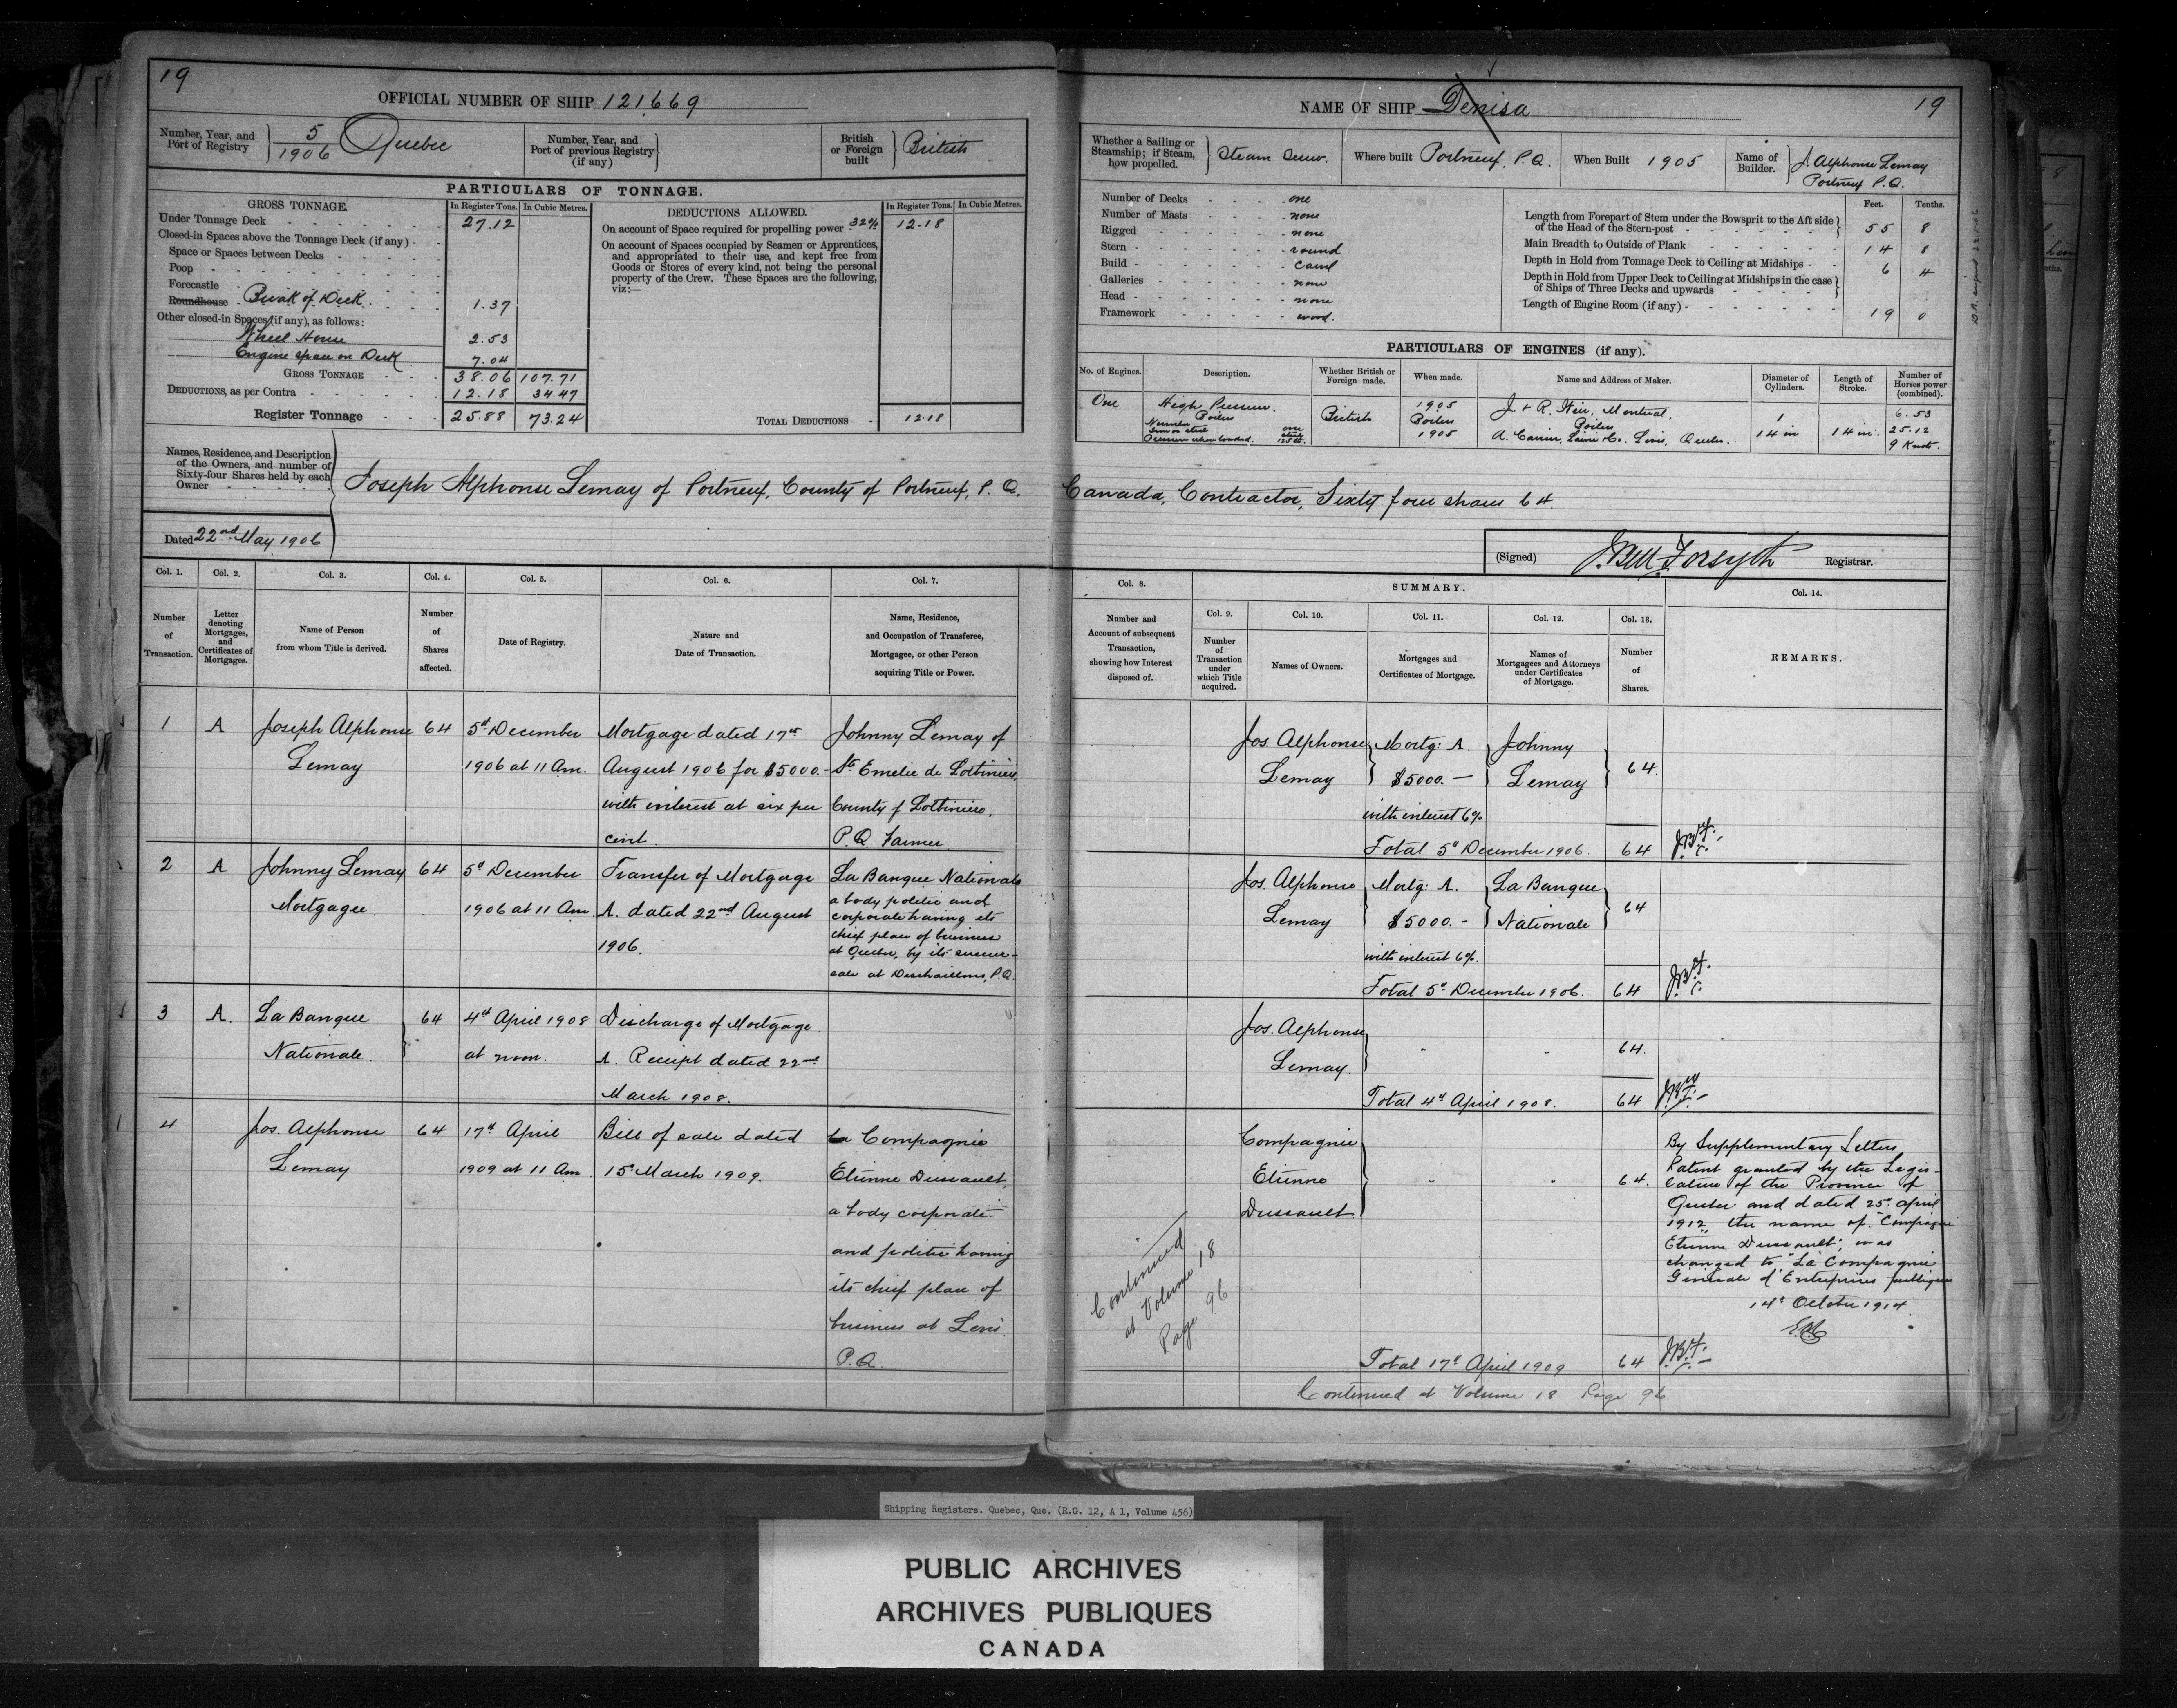 19
OFFICIAL NUMBER OF SHIP 121669
Number, Year, and
Port of Registry
5
1906
Quebec
Number, Year, and
Port of previous Registry
(if any)
British
or Foreign
built
British
PARTICULARS OF TONNAGE.
GROSS TONNAGE. In Register Tons. In Cubic Metres.
Under Tonnage Deck 27.12
Closed-in Spaces above the Tonnage Deck (if any)
Space or Spaces between Decks
Poop
Forecastle
Roundhouse Break of Deck 1.37
Other closed-in Spaces (if any), as follows:
Wheel House 2.53
Engine space on Deck 7.04
GROSS TONNAGE 38.06 107.71
DEDUCTIONS, as per Contra 12.18 34.47
Register Tonnage 25.88 73.24
DEDUCTIONS ALLOWED. In Register Tons. In Cubic Metres.
On account of Space required for propelling power 32% 12.18
On account of Spaces occupied by Seamen or Apprentices,
and appropriated to their use, and kept free from
Goods or Stores of every kind, not being the personal
property of the Crew. These Spaces are the following,
viz:—
TOTAL DEDUCTIONS 12.18
Names, Residence, and Description
of the Owners, and number of
Sixty-four Shares held by each
Owner
Joseph Alphonse Lemay of Portneuf, County of Portneuf, P. Q.
Dated 22nd May 1906
Col. 1. Col. 2. Col. 3. Col. 4. Col. 5. Col. 6. Col. 7.
Number
of
Transaction.
Letter
denoting
Mortgages,
and
Certificates of
Mortgages.
Name of Person
from whom Title is derived.
Number
of
Shares
affected.
Date of Registry.
Nature and
Date of Transaction.
Name, Residence,
and Occupation of Transferee,
Mortgagee, or other Person
acquiring Title or Power.
1 A Joseph Alphonse 64 5th December Mortgage dated 17th Johnny Lemay of
Lemay 1906 at 11 Am. August 1906 for $5000.- Ste Emelie de Lotbiniere
with interest at six per County of Lotbiniere,
cent. P.Q. Farmer.
2 A Johnny Lemay 64 5th December Transfer of Mortgage La Banque Nationale
Mortgagee. 1906 at 11 Am A. dated 22nd August
1906.
a body politic and
corporate having its
chief place of business
at Quebec, by its succur-
sale at Deschaillons, P.Q.
3 A. La Banque 64 4th April 1908 Discharge of Mortgage
Nationale. at noon. A. Receipt dated 22nd
March 1908.
4 Jos. Alphonse 64 17th April Bill of sale dated La Compagnie
Lemay 1909 at 11 Am. 15th March 1909. Etienne Dussault,
a body corporate
and politic having
its chief place of
business at Levis.
P.Q.
NAME OF SHIP Denisa 19
Whether a Sailing or
Steamship; if Steam,
how propelled.
Steam Screw.
Where built Portneuf, P.Q.
When Built 1905
Name of
Builder.
J. Alphonse Lemay
Portneuf P.Q.
Number of Decks one
Number of Masts none
Rigged none
Stern round
Build Carvel
Galleries none
Head none
Framework wood.
Feet. Tenths.
Length from Forepart of Stem under the Bowsprit to the Aft side
of the Head of the Stern-post 55 8
Main Breadth to Outside of Plank 14 8
Depth in Hold from Tonnage Deck to Ceiling at Midships 6 4
Depth in Hold from Upper Deck to Ceiling at Midships in the case
of Ships of Three Decks and upwards
Length of Engine Room (if any) 19 0
PARTICULARS OF ENGINES (if any).
No. of Engines. Description. Whether British or
Foreign made. When made. Name and Address of Maker. Diameter of
Cylinders. Length of
Stroke. Number of
Horses power
(combined).
One High Pressure. British 1905 J. & R. Weir, Montreal. 1 6.53
Boilers Boilers Boilers
Number one
Iron or steel steel
Pressure when loaded. 125 lb.
1905 A. Carrier, Lainé & Co. Levis, Quebec. 14 in 14 in. 25.12
9 Knots.
Canada, Contractor, Sixty four shares 64.
(Signed) J. Bell Forsyth Registrar.
Col. 8. SUMMARY. Col. 14.
Number and
Account of subsequent
Transaction,
showing how Interest
disposed of.
Col. 9. Col. 10. Col. 11. Col. 12. Col. 13.
Number
of
Transaction
under
which Title
acquired.
Names of Owners.
Mortgages and
Certificates of Mortgage.
Names of
Mortgagees and Attorneys
under Certificates
of Mortgage.
Number
of
Shares.
REMARKS.
Jos. Alphonse Mortg: A. Johnny
Lemay $5000.— Lemay 64.
with interest 6%
Total 5th December 1906. 64 J.B.F.
Jos. Alphonse Mortg: A. La Banque
Lemay $5000.- Nationale 64
with interest 6%.
Total 5th December 1906. 64 J.B.F.
Jos. Alphonse
Lemay. 64.
Total 4th April 1908. 64 J.B.F.
Compagnie
Etienne 64.
Dussault
By Supplementary Letters
Patent granted by the Legis-
lature of the Province of
Quebec and dated 25th April
1912, the name of "Compagnie
Etienne Dussault", was
changed to "La Compagnie
Générale d'Entreprises publiques
14th October 1914.
Continued
at Volume 18
Page 96
Total 17th April 1909 64 J.B.F.
Continued at Volume 18 Page 96
Shipping Registers. Quebec, Que. (R.G. 12, A 1, Volume 456)
PUBLIC ARCHIVES
ARCHIVES PUBLIQUES
CANADA